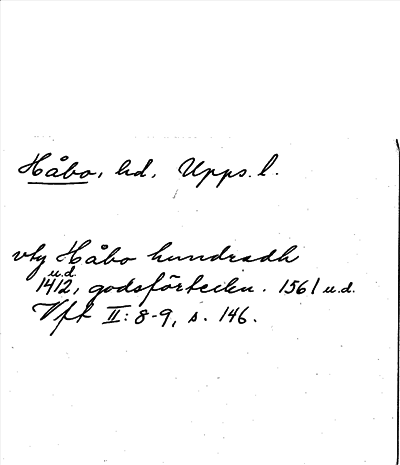 Håbo, hd, Upps. l.
vtg Håbo hundradh
u.d.
1412, godsförteckn. 1561 u.d.
Vft II: 8-9, s. 146.